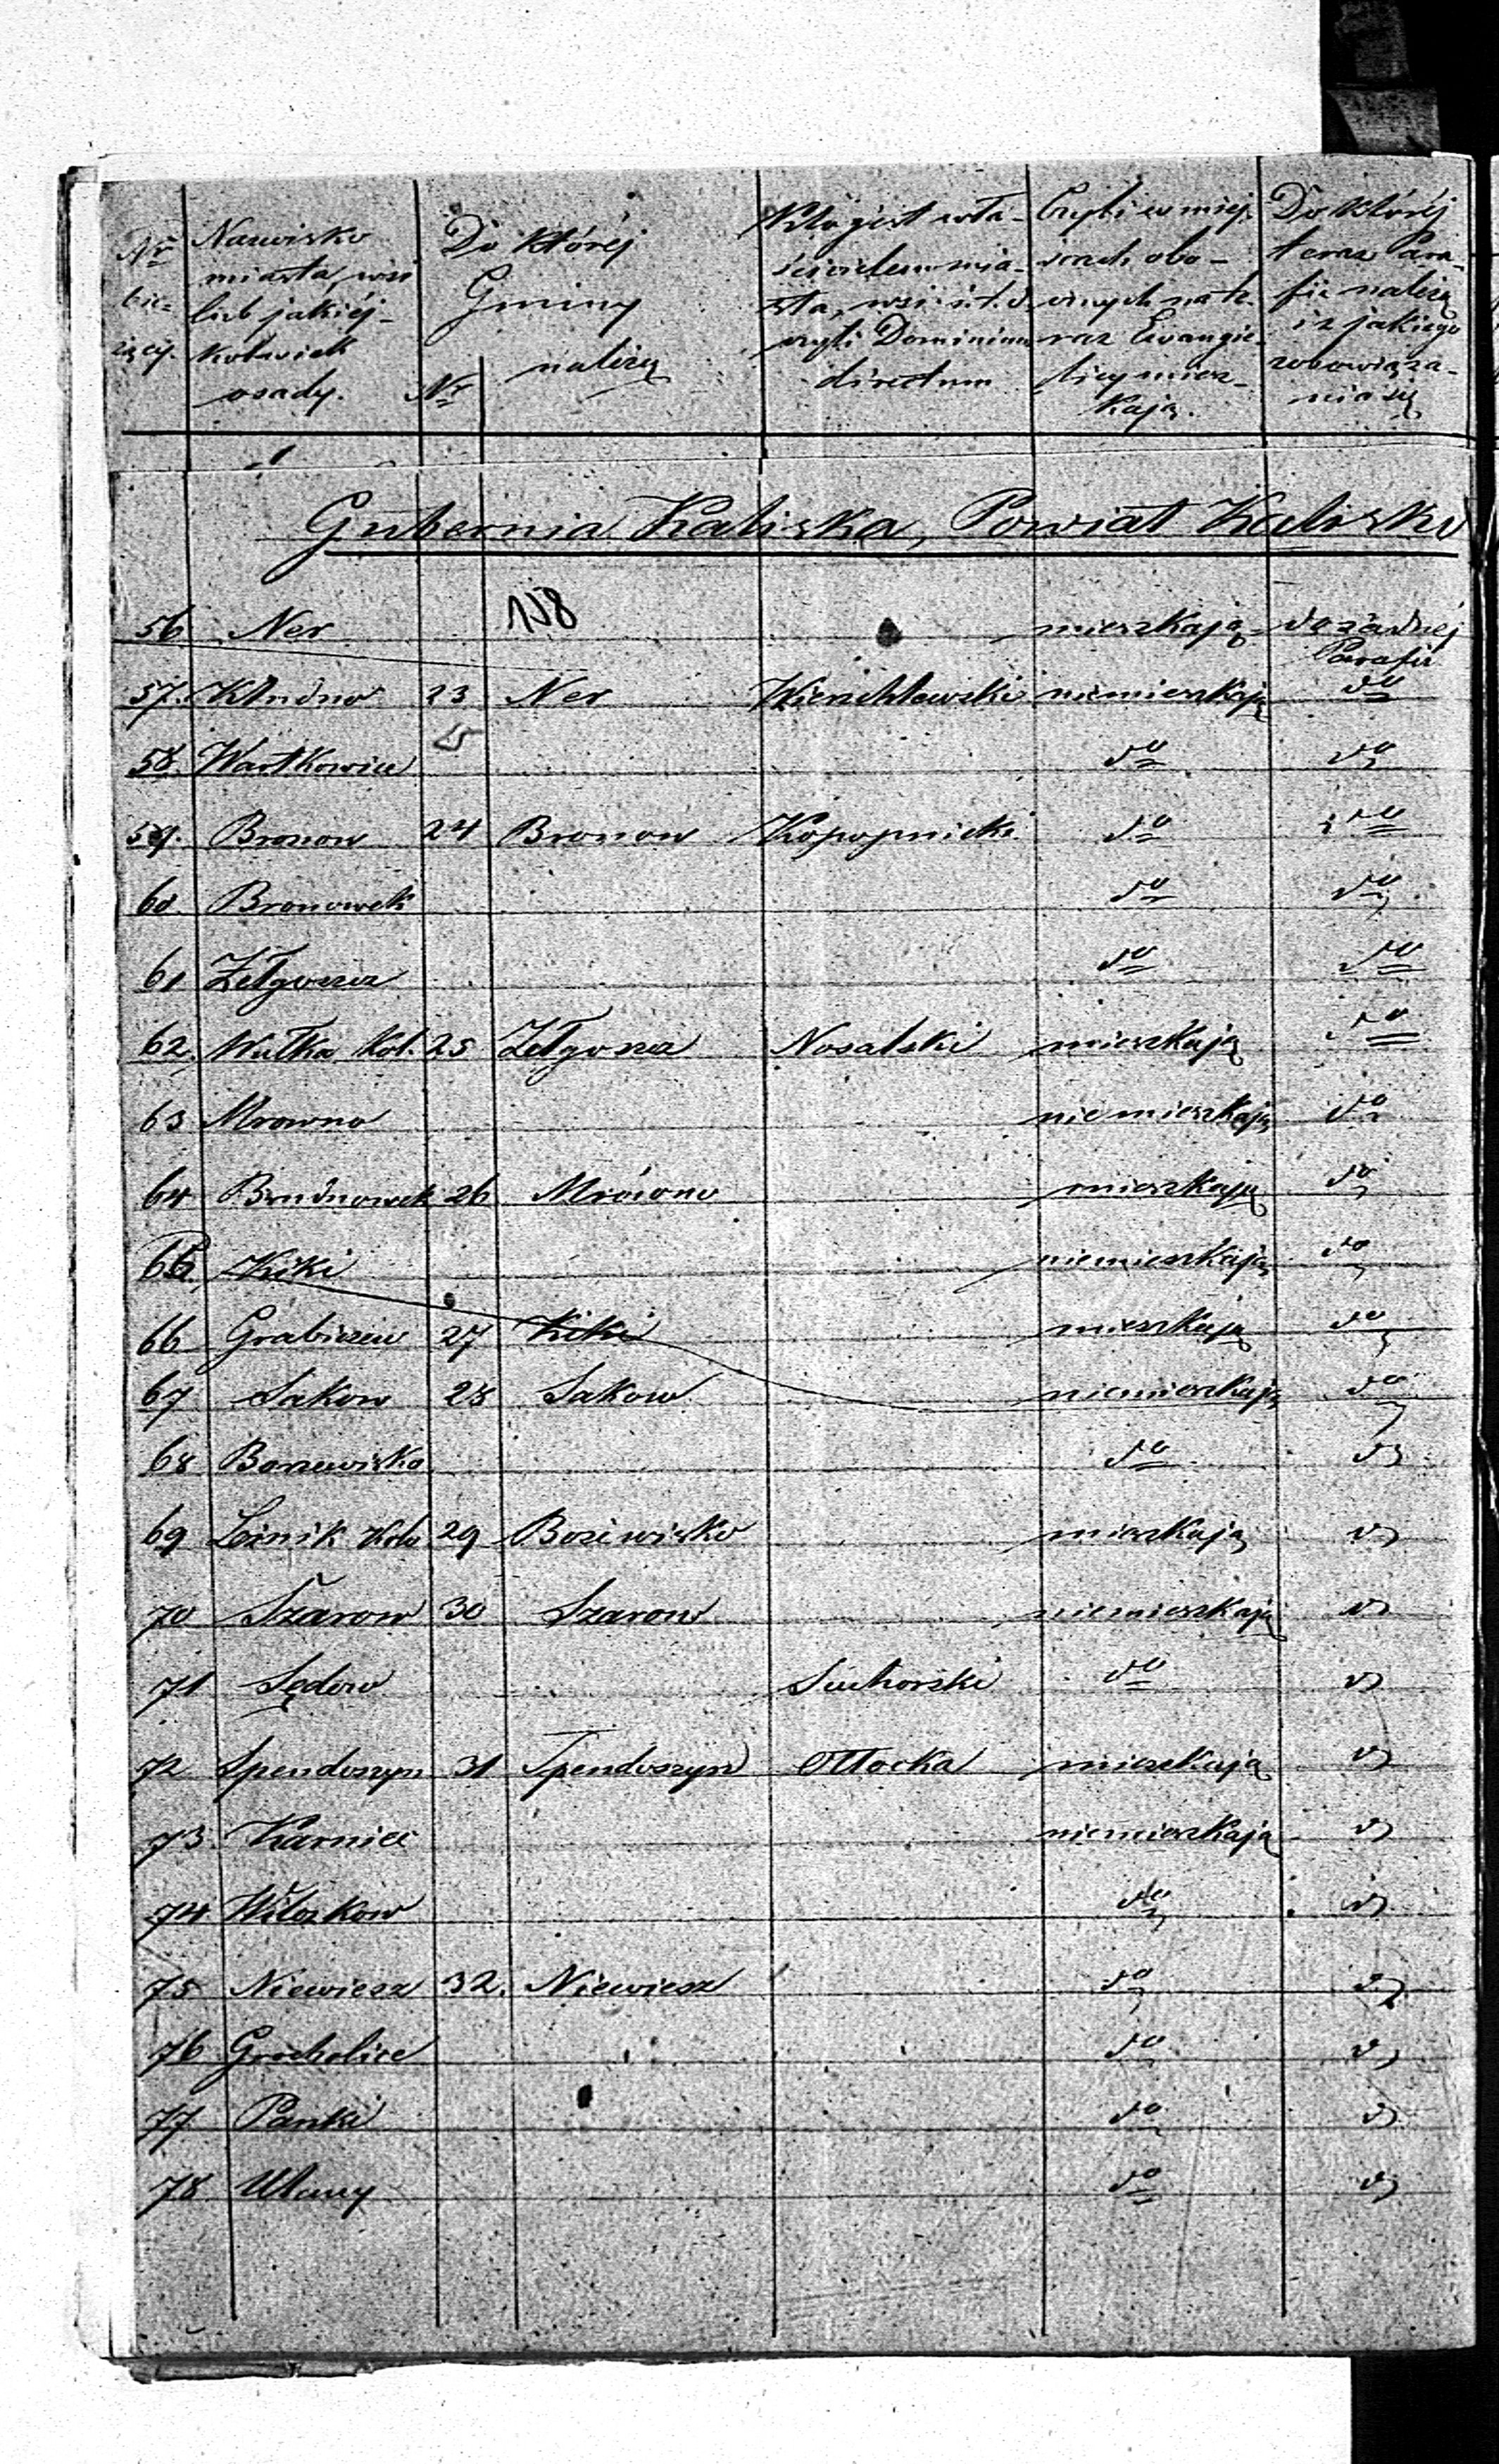 Nr bie- żący.
Nazwisko miasta, wsi lub jakiéj- kolwiek osady.
Do któréj Gminy należą
Nr
Kto jest wła- ścicielem mia- sta, wsi i t. d. czyli Dominium directum
Czyli w miej- scach obo- cznych na te- raz Ewangie- licy miesz- kają.
Do któréj teraz Para- fii należą i z jakiego zobowiąza- nia się
Gubernia Kaliska, Powiat Kaliski
158
56 Ner mieszkają do żadnéj Parafii
57. Kłudno 23 Ner Wierzchlewski niemieszkają do
58. Wartkowice do do
59. Bronow 24 Bronow Kopopnicki do do
60. Bronowek do do
61 Zelgoszcz do do
62. Wulka Kol. 25 Zelgoszcz Nosalski mieszkają do
63 Mrowna niemieszkają do
64 Brudnowek 26 Mrówna mieszkają do
65. Kiki niemieszkają do
66 Grabiszew 27 Kiki mieszkają do
67 Sakow 28 Sakow niemieszkają do
68 Borzewisko do do
69 Leśnik Kolo 29 Boziwisko mieszkają do
70 Szarow 30 Szarow niemieszkają do
71 Sędow Suchorski do do
72 Spendoszyn 31 Spendoszyn Ottocka mieszkają do
73. Karnice niemieszkają do
74 Wilczkow do do
75 Niewiesz 32. Niewiesz do do
76 Grocholice do do
77 Panki do do
78 Ulany do do